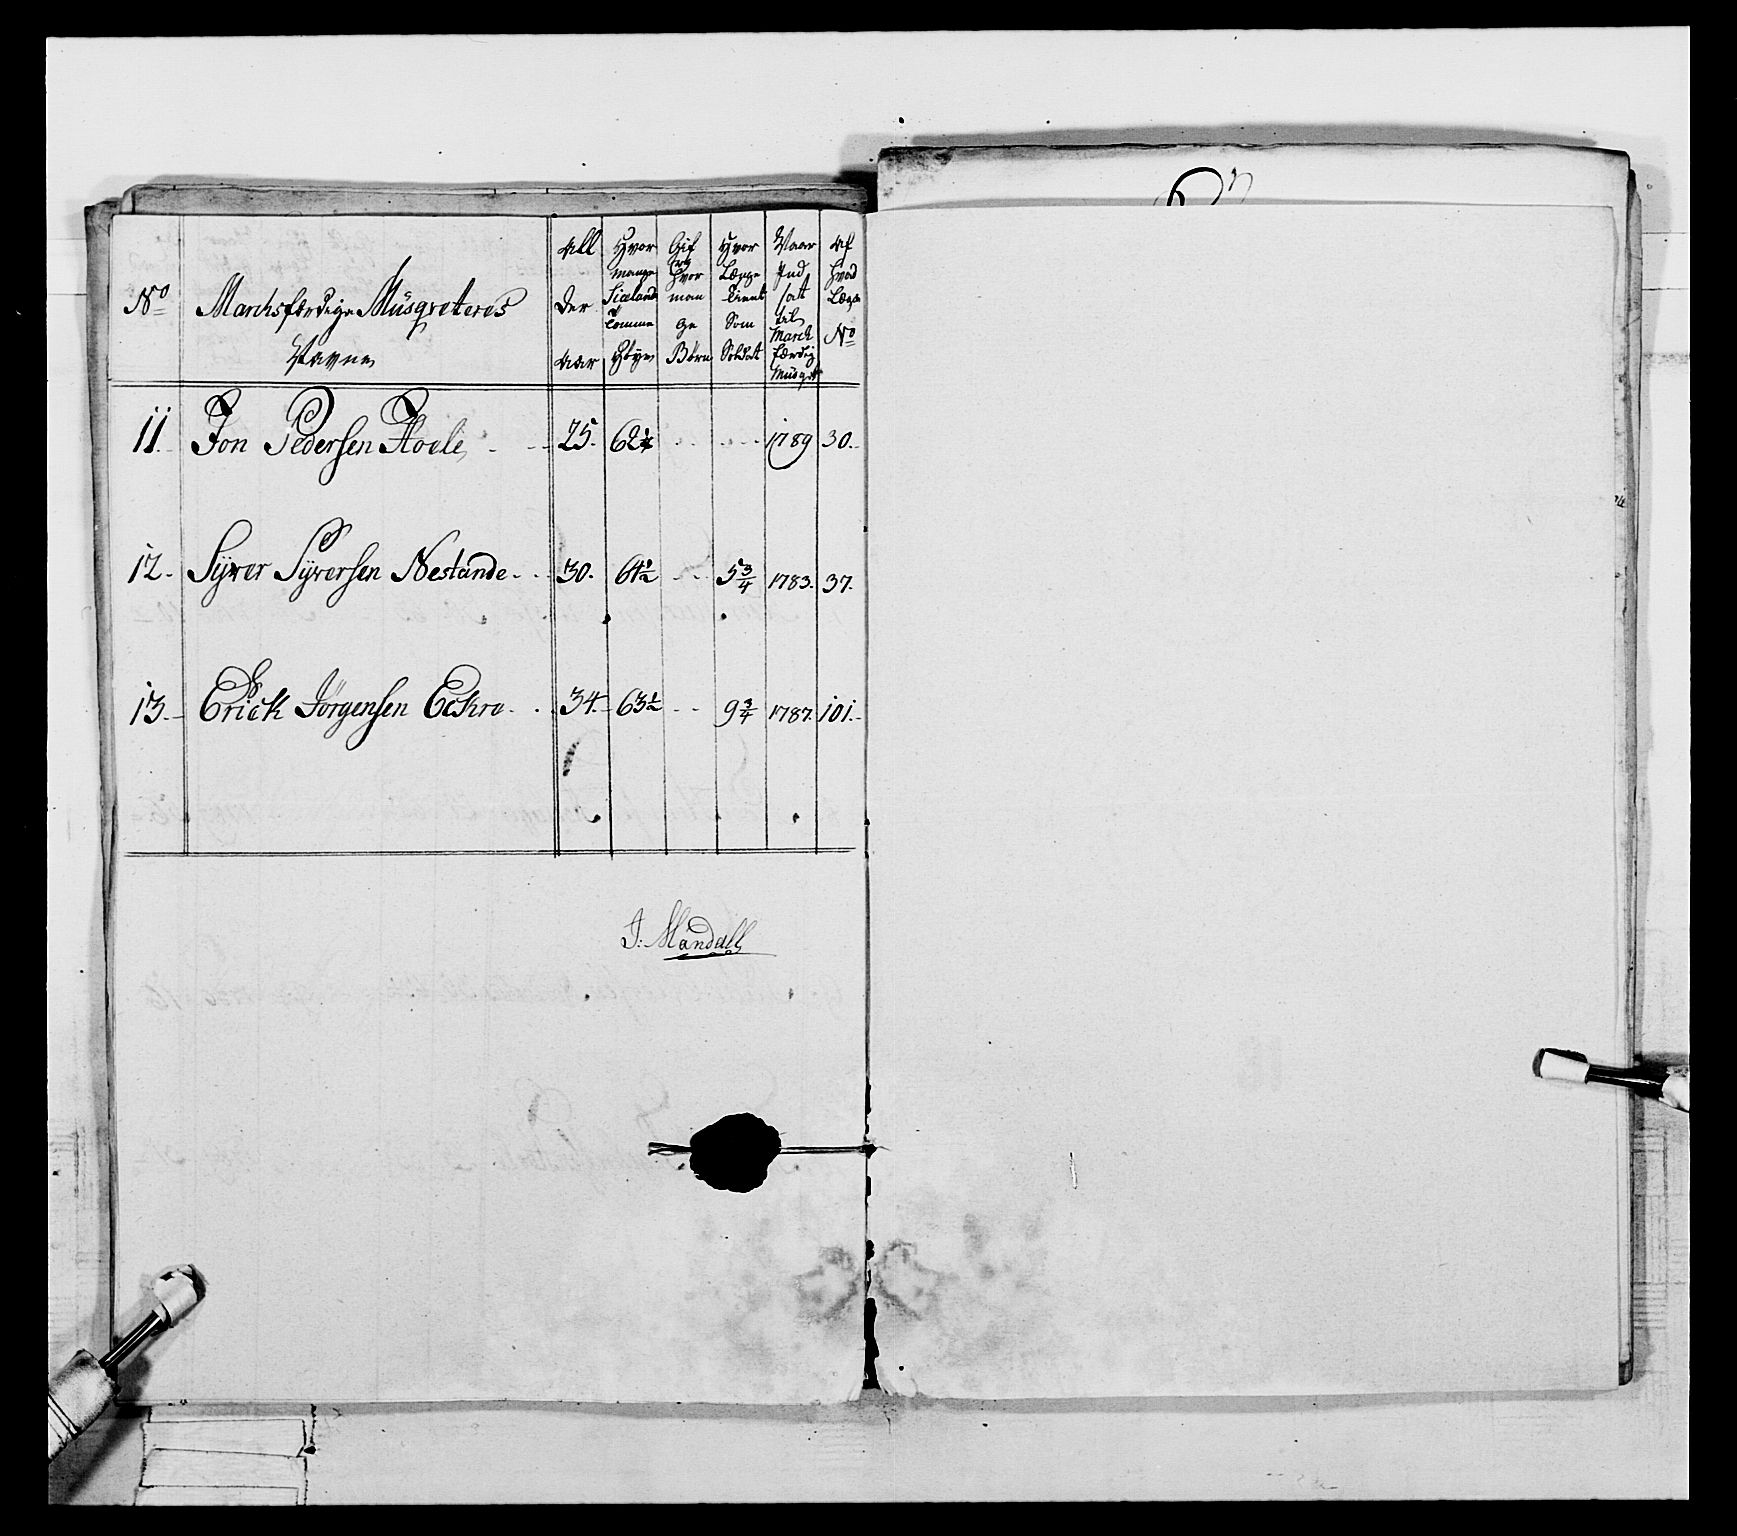 No Marchsfærdige Müsqveteres Navne
All der Aar
Hvor mange Siælands Tomme Høye
Gif og Hvor man ge Børn
Hvor Længe tient Som Soldat
Naar Ind sat til March færdig Musqvet
Af hvad Læge No
11. Jon Pedersen Hoele 25. 62¼ 1789 30.
12. Syver Syversen Nestande 30. 64½ 5¾ 1783. 37.
13. Erick Jörgensen Eckro 34. 63½ 9¾ 1787. 101.
J: Mandall